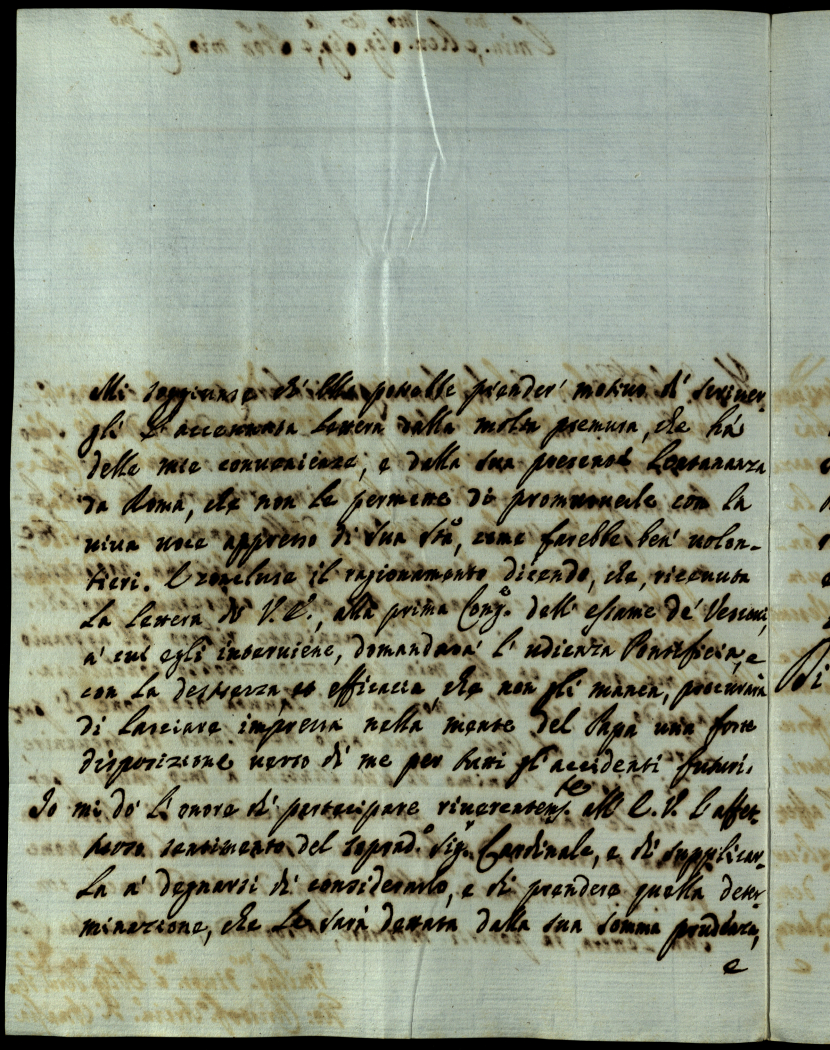 Mi soggiunse ch'Ella potrebbe prender' motivo di' scriver-
gli l'accennata lettera dalla molta premura, che ha'
delle mie convenienze, e dalla sua presente lontananza
da Roma, che non le permette di promuoverle con la
viva voce appresso di Sua Stà, come farebbe ben' volon-
tieri. E concluse il ragionamento dicendo, che, ricevuta
la lettera di V.E., alla prima Congne. dell'essame de' Vescovi,
a' cui egli interviene, domandarà l'udienza Pontificia, e
con la destrezza, et efficacia, che non gli manca, procurarà
di lasciare impressa nella mente del Papa una forte
disposizione verso di me per tutti gl'accidenti futuri.
Io mi do' l'onore di' partecipare riverentemte. all'E.V. l'affet-
tuoso sentimento del sopradº. Sigr. Cardinale, e di' supplicar-
la a' degnarsi di' considerarlo, e di prendere quella deter-
minazione, che Le sarà dettata dalla sua somma prudenza,
e